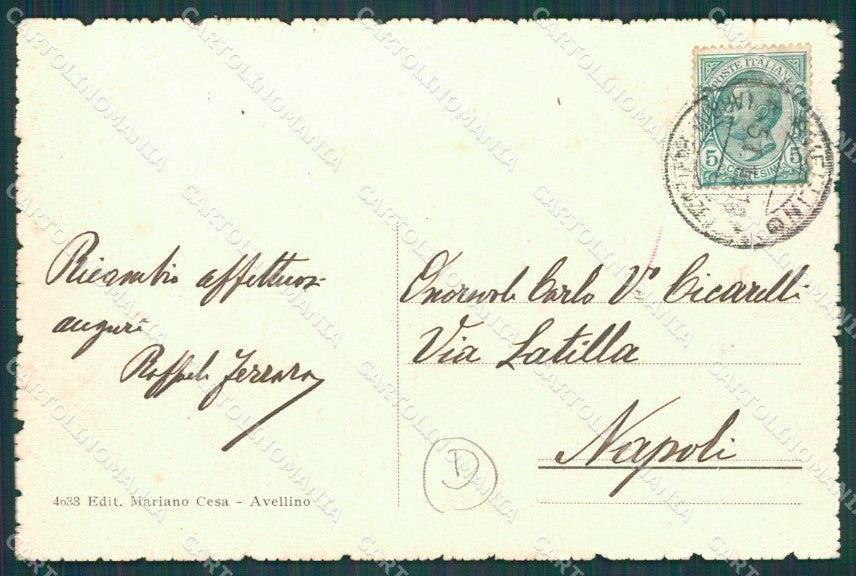 POSTE ITALIANE
5 5
CENTESIMI
AVELLINO
Ricambio affettuosi
auguri
Raffaele Ferrara
Onorevole Carlo Vo Cicarelli
Via Latilla
Napoli
D
4033 Edit. Mariano Cesa - Avellino
CARTOLINOMANIA